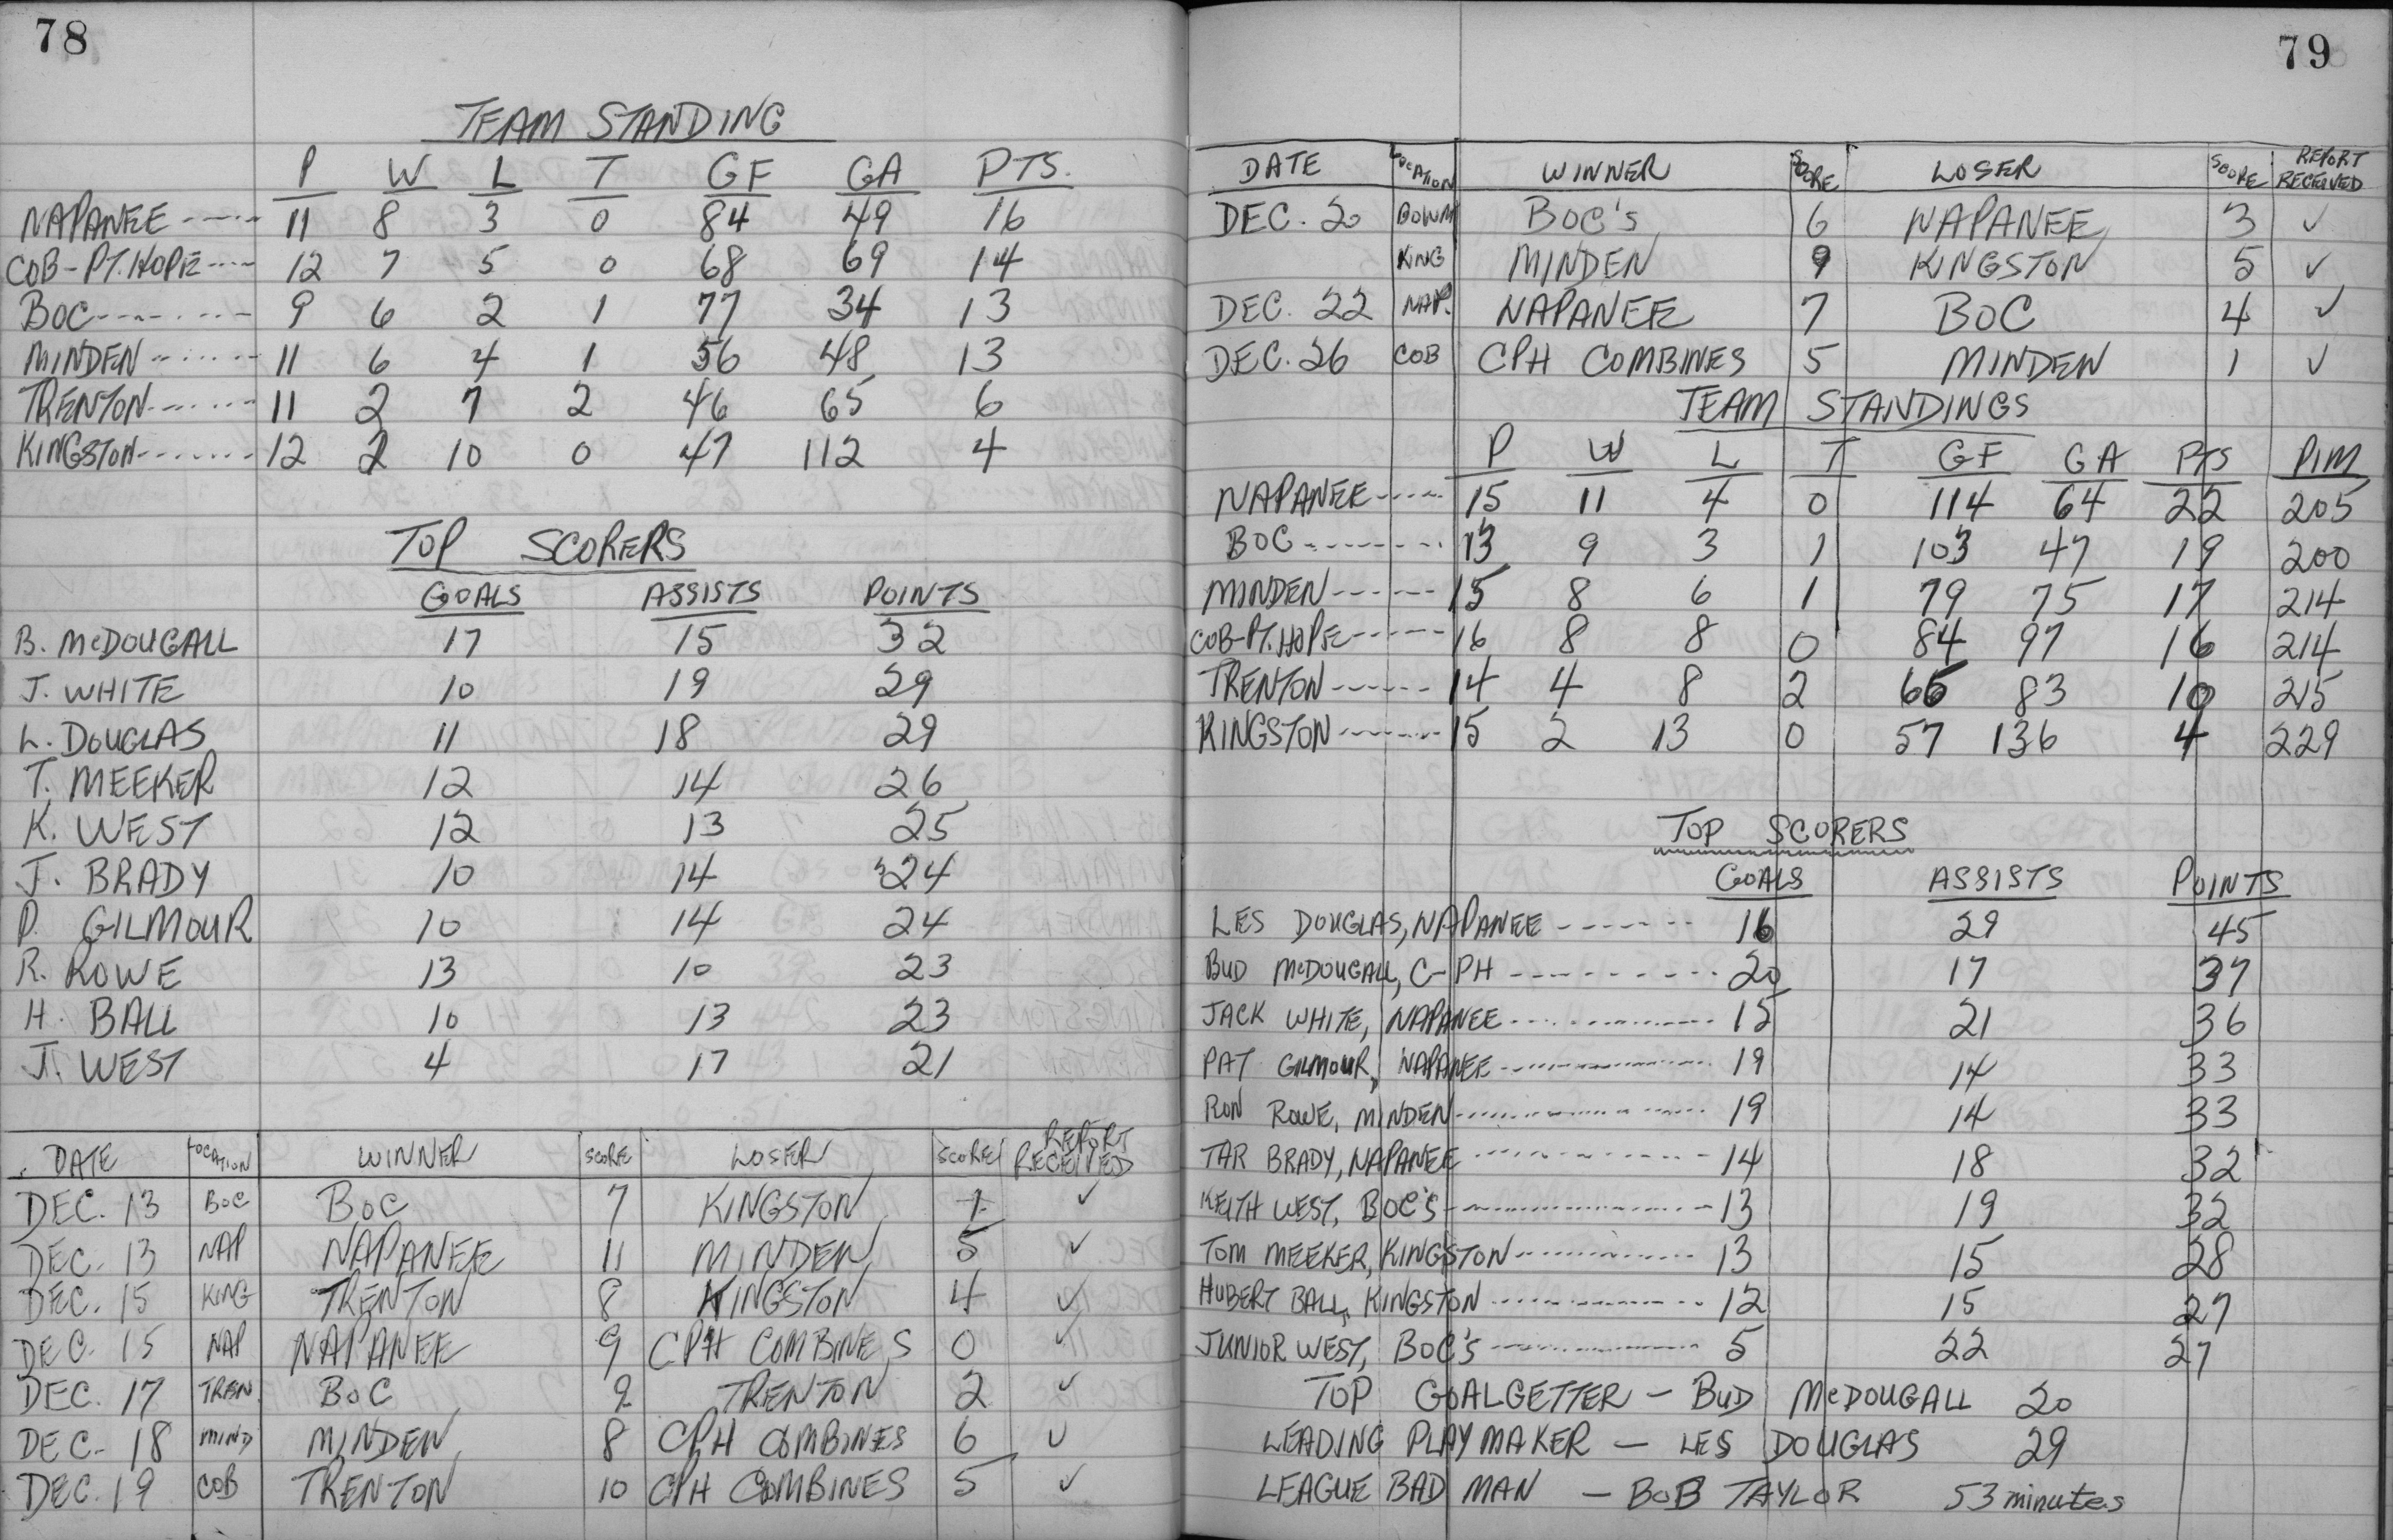 78
TEAM STANDING
P W L T GF GA PTS.
NAPANEE 11 8 3 0 84 49 16
COB-PT.HOPE 12 7 5 0 68 69 14
BOC 9 6 2 1 77 34 13
MINDEN 11 6 4 1 56 48 13
TRENTON 11 2 7 2 46 65 6
KINGSTON 12 2 10 0 47 112 4
TOP SCORERS
GOALS ASSISTS POINTS
B. McDOUGALL 17 15 32
J. WHITE 10 19 29
L. DOUGLAS 11 18 29
T. MEEKER 12 14 26
K. WEST 12 13 25
J. BRADY 10 14 24
P. GILMOUR 10 14 24
R. ROWE 13 10 23
H. BALL 10 13 23
J. WEST 4 17 21
DATE LOCATION WINNER SCORE LOSER SCORE REPORT RECEIVED
DEC. 13 BOC BOC 7 KINGSTON 1 ✓
DEC. 13 NAP NAPANEE 11 MINDEN 5 ✓
DEC. 15 KING TRENTON 8 KINGSTON 4 ✓
DEC. 15 NAP NAPANEE 9 CPH COMBINES 0 ✓
DEC. 17 TREN. BOC 9 TRENTON 2 ✓
DEC. 18 MIND MINDEN 8 CPH COMBINES 6 ✓
DEC. 19 COB TRENTON 10 CPH COMBINES 5 ✓
79
DATE LOCATION WINNER SCORE LOSER SCORE REPORT RECEIVED
DEC. 20 BOWM BOC's 6 NAPANEE 3 ✓
KING MINDEN 9 KINGSTON 5 ✓
DEC. 22 NAP. NAPANEE 7 BOC 4 ✓
DEC. 26 COB CPH COMBINES 5 MINDEN 1 ✓
TEAM STANDINGS
P W L T GF GA PTS PIM
NAPANEE 15 11 4 0 114 64 22 205
BOC 13 9 3 1 103 47 19 200
MINDEN 15 8 6 1 79 75 17 214
COB-PT.HOPE 16 8 8 0 84 97 16 214
TRENTON 14 4 8 2 66 83 10 215
KINGSTON 15 2 13 0 57 136 4 229
TOP SCORERS
GOALS ASSISTS POINTS
LES DOUGLAS, NAPANEE 16 29 45
BUD McDOUGALL, C-PH 20 17 37
JACK WHITE, NAPANEE 15 21 36
PAT GILMOUR, NAPANEE 19 14 33
RON ROWE, MINDEN 19 14 33
TAR BRADY, NAPANEE 14 18 32
KEITH WEST, BOC's 13 19 32
TOM MEEKER, KINGSTON 13 15 28
HUBERT BALL, KINGSTON 12 15 27
JUNIOR WEST, BOC's 5 22 27
TOP GOALGETTER - BUD McDOUGALL 20
LEADING PLAYMAKER - LES DOUGLAS 29
LEAGUE BAD MAN - BOB TAYLOR 53 minutes